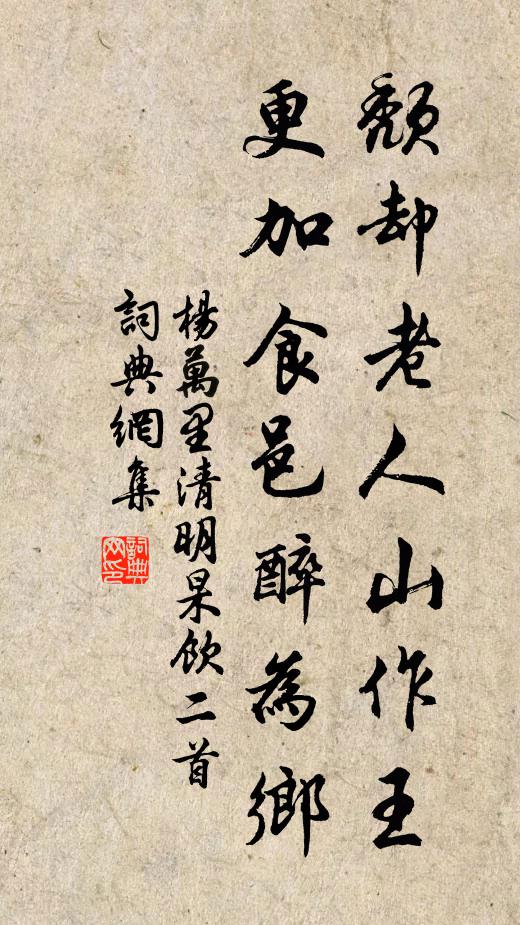 頹却老人山作玉
更加食邑醉為鄉
楊萬里清明杲飲二首
詞典網集
詞典網印